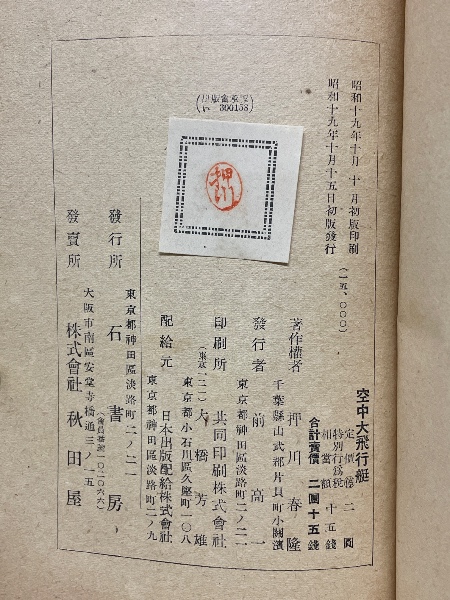 昭和十九年十月 十 月初版印刷
昭和十九年十月十五日初版発行
(一五、〇〇〇)
い 300158
空中大飛行艇
定價 二 圓
特別行爲税相當額 十五錢
合計賣價 二圓十五錢
千葉縣山武郡片貝町小關濱
著作權者 押川春隆
東京都神田區淡路町二ノ二一
發行者 前 高一
東京都小石川區久堅町一〇八
印刷所 共同印刷株式會社
(東京一二) 大橋芳雄
東京都神田區淡路町二ノ九
配給元 日本出版配給株式會社
東京都神田區淡路町二ノ二一
發行所 石書房
大阪市南區安堂寺橋通三ノ一五
發賣所 株式會社 秋田屋